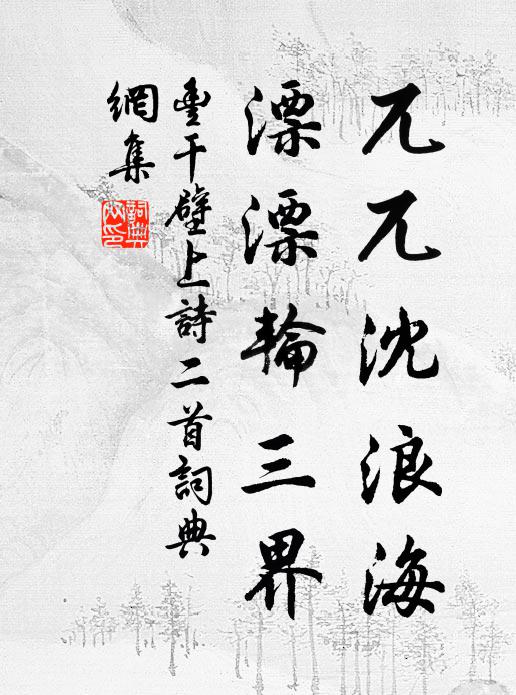 兀兀沈浪海
漂漂輪三界
豊干壁上詩二首詞典
網集
詞典網印